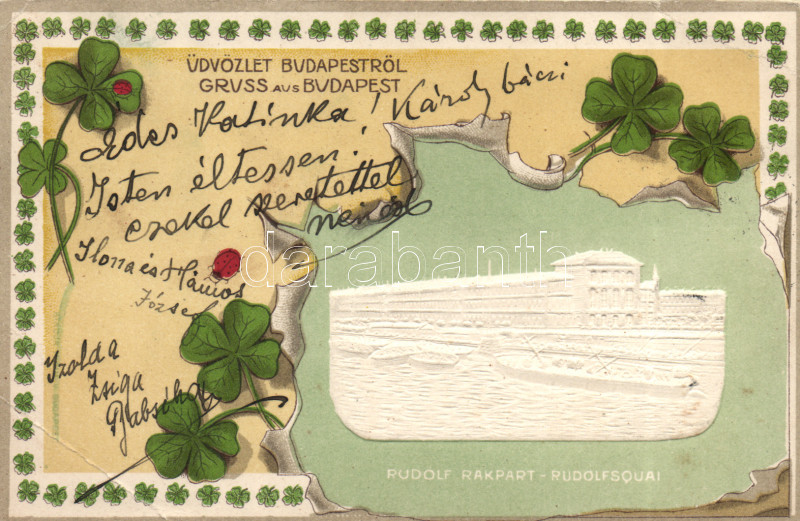 ÜDVÖZLET BUDAPESTRŐL
GRUSS AUS BUDAPEST
Édes Katinka! Károly bácsi
Isten éltessen!
ezekel szeretettel
Ilona és Hámos
József
Izolda
Zsiga
Babsika
darabanth.com
RUDOLF RAKPART - RUDOLFSQUAI